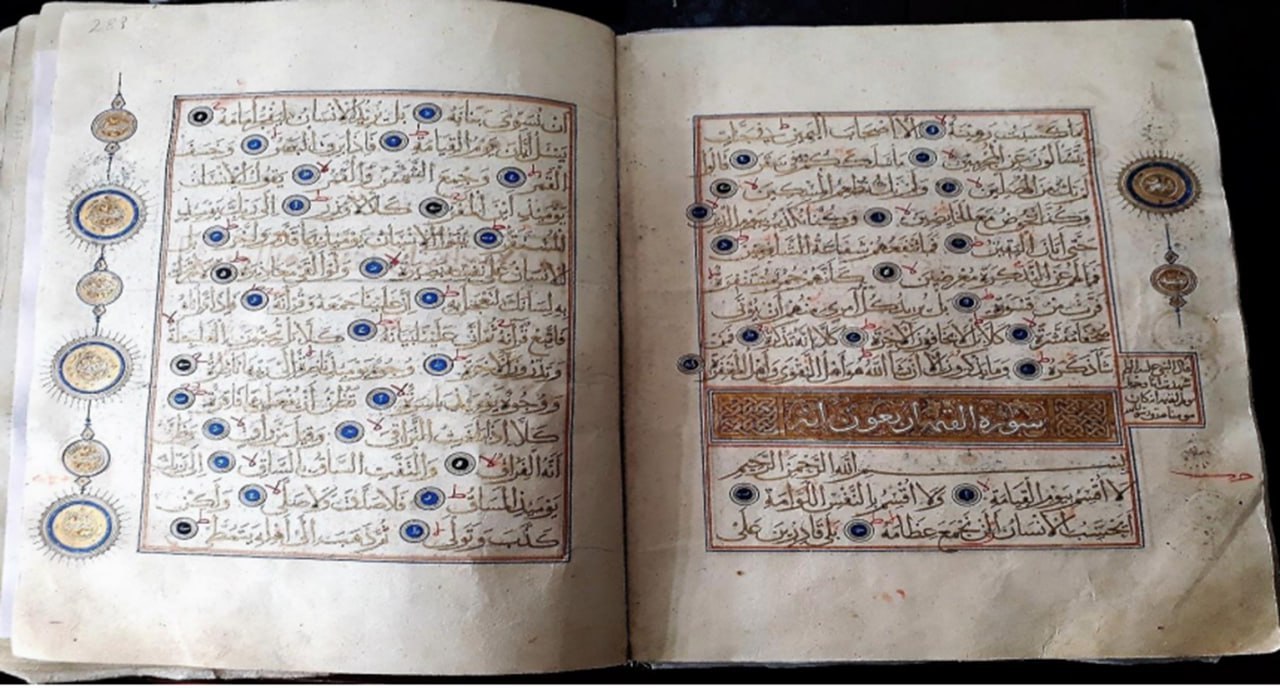 ما كسبت رهينة إلا أصحاب اليمين في جنات
يتساءلون عن المجرمين ما سلككم في سقر قالوا
لم نك من المصلين ولم نك نطعم المسكين
وكنا نخوض مع الخائضين وكنا نكذب بيوم الدين
حتى أتانا اليقين فما تنفعهم شفاعة الشافعين
فما لهم عن التذكرة معرضين كأنهم حمر مستنفرة
فرت من قسورة بل يريد كل امرئ منهم أن يؤتى
صحفا منشرة كلا بل لا يخافون الآخرة كلا إنه تذكرة فمن
شاء ذكره وما يذكرون إلا أن يشاء الله هو أهل التقوى وأهل المغفرة
سورة القيمة اربعون اية
بسم الله الرحمن الرحيم
لا أقسم بيوم القيامة ولا أقسم بالنفس اللوامة
أيحسب الإنسان ألن نجمع عظامه بلى قادرين على
283
أن نسوي بنانه بل يريد الإنسان ليفجر أمامه
يسئل أيان يوم القيامة فإذا برق البصر وخسف
القمر وجمع الشمس والقمر يقول الإنسان
يومئذ أين المفر كلا لا وزر إلى ربك يومئذ
المستقر ينبأ الإنسان يومئذ بما قدم وأخر بل
الإنسان على نفسه بصيرة ولو ألقى معاذيره لا تحرك
به لسانك لتعجل به إن علينا جمعه وقرآنه فإذا قرأناه
فاتبع قرآنه ثم إن علينا بيانه كلا بل تحبون العاجلة
وتذرون الآخرة وجوه يومئذ ناضرة إلى ربها ناظرة
ووجوه يومئذ باسرة تظن أن يفعل بها فاقرة
كلا إذا بلغت التراقي وقيل من راق وظن
أنه الفراق والتفت الساق بالساق إلى ربك
يومئذ المساق فلا صدق ولا صلى ولكن
كذب وتولى ثم ذهب إلى أهله يتمطى